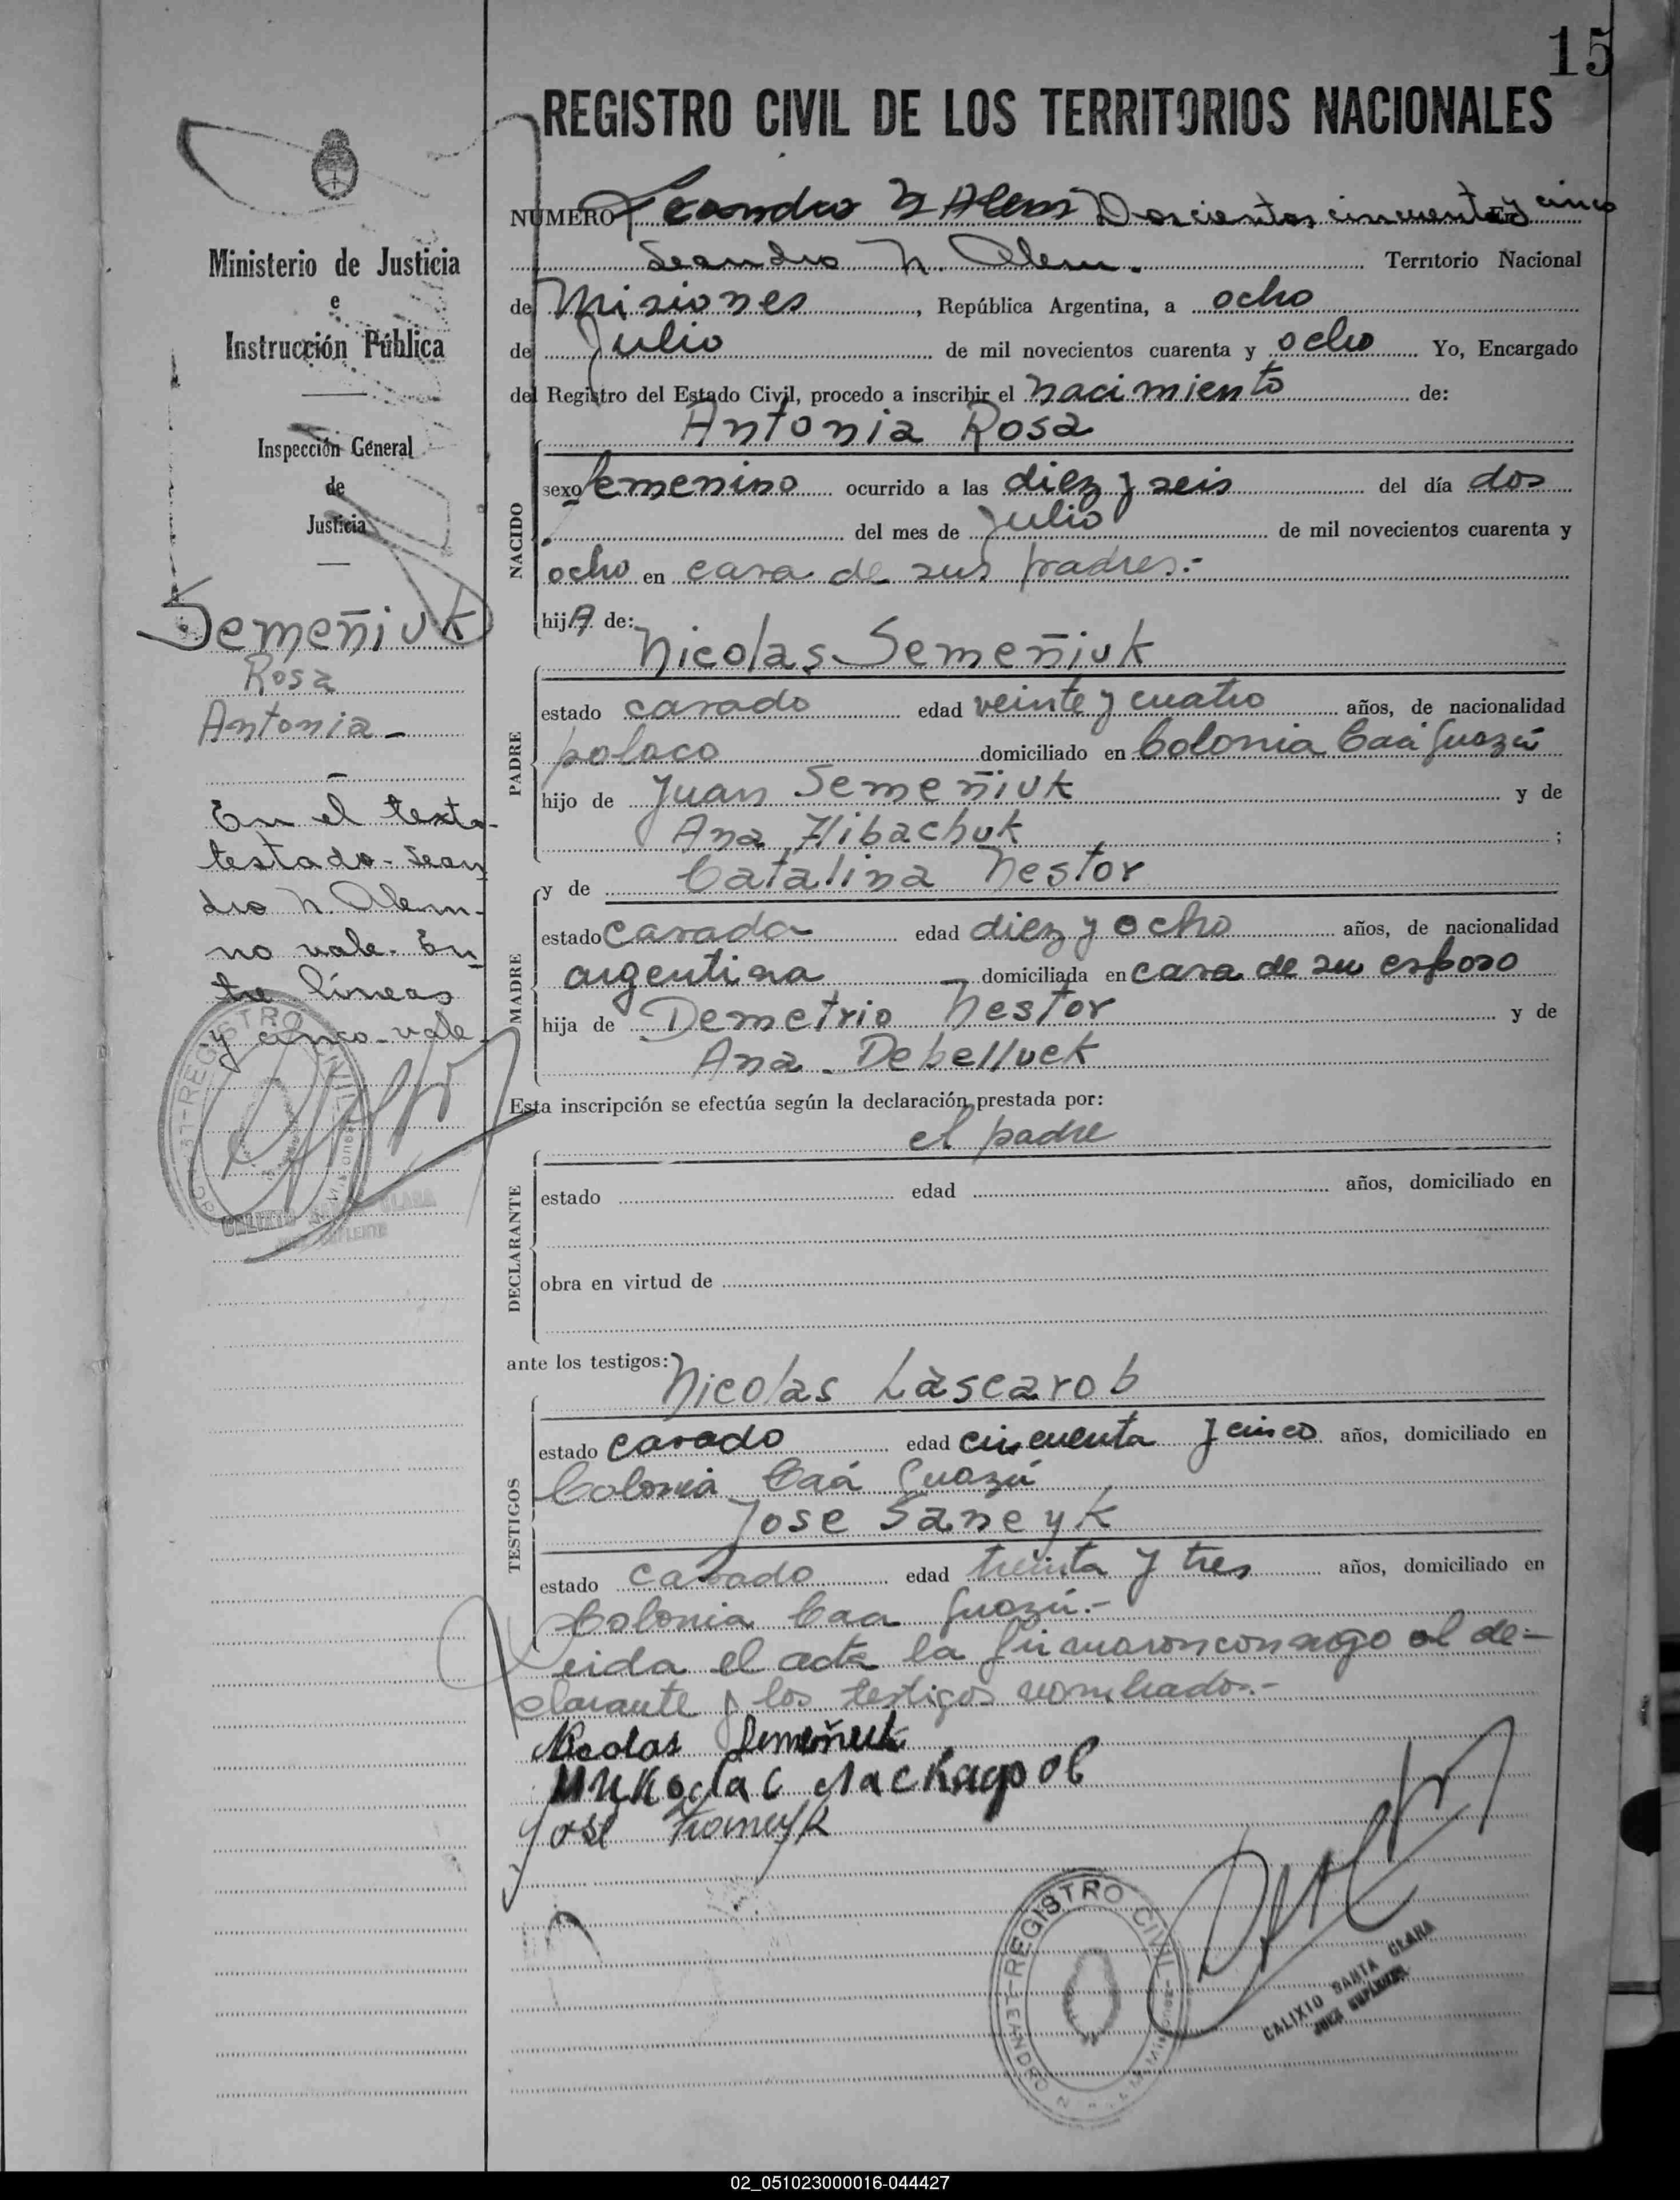 15
REGISTRO CIVIL DE LOS TERRITORIOS NACIONALES
Ministerio de Justicia
e
Instrucción Pública
Inspección General
de
Justicia
Semeñiuk
Rosa
Antonia -
-
En el texto-
testado - Lean
dro N. Alem-
no vale - En
tre líneas
y cinco - vale
REGISTRO CIVIL
CALIXTO SANTA CLARA
JUEZ SUPLENTE
NUMERO Leandro N Alem Doscientos cincuenta y cinco
Leandro N. Alem. Territorio Nacional
de Misiones, República Argentina, a ocho
de Julio de mil novecientos cuarenta y ocho Yo, Encargado
del Registro del Estado Civil, procedo a inscribir el nacimiento de:
Antonia Rosa
NACIDO
sexo femenino ocurrido a las diez y seis del día dos
del mes de julio de mil novecientos cuarenta y
ocho en casa de sus padres.-
hijA de:
Nicolas Semeñiuk
PADRE
estado casado edad veinte y cuatro años, de nacionalidad
polaco domiciliado en Colonia Caá Guazú
hijo de Juan Semeñiuk y de
Ana Hlibachuk ;
y de Catalina Nestor
MADRE
estado casada edad diez y ocho años, de nacionalidad
argentina domiciliada en casa de su esposo
hija de Demetrio Nestor y de
Ana Debelluck
Esta inscripción se efectúa según la declaración prestada por:
el padre
DECLARANTE
estado edad años, domiciliado en
obra en virtud de
ante los testigos:
Nicolas Làscarob
TESTIGOS
estado casado edad cincuenta y cinco años, domiciliado en
Colonia Caá Guazú
Jose Saneyk
estado casado edad treinta y tres años, domiciliado en
Colonia Caa Guazú.-
Leida el acta la firmaron conmigo el de-
clarante y los testigos nombrados.-
Nicolas Semeñiuk
Николас Ласкаров
José
REGISTRO CIVIL
LEANDRO N.
CALIXTO SANTA CLARA
JUEZ SUPLENTE
02_051023000016-044427